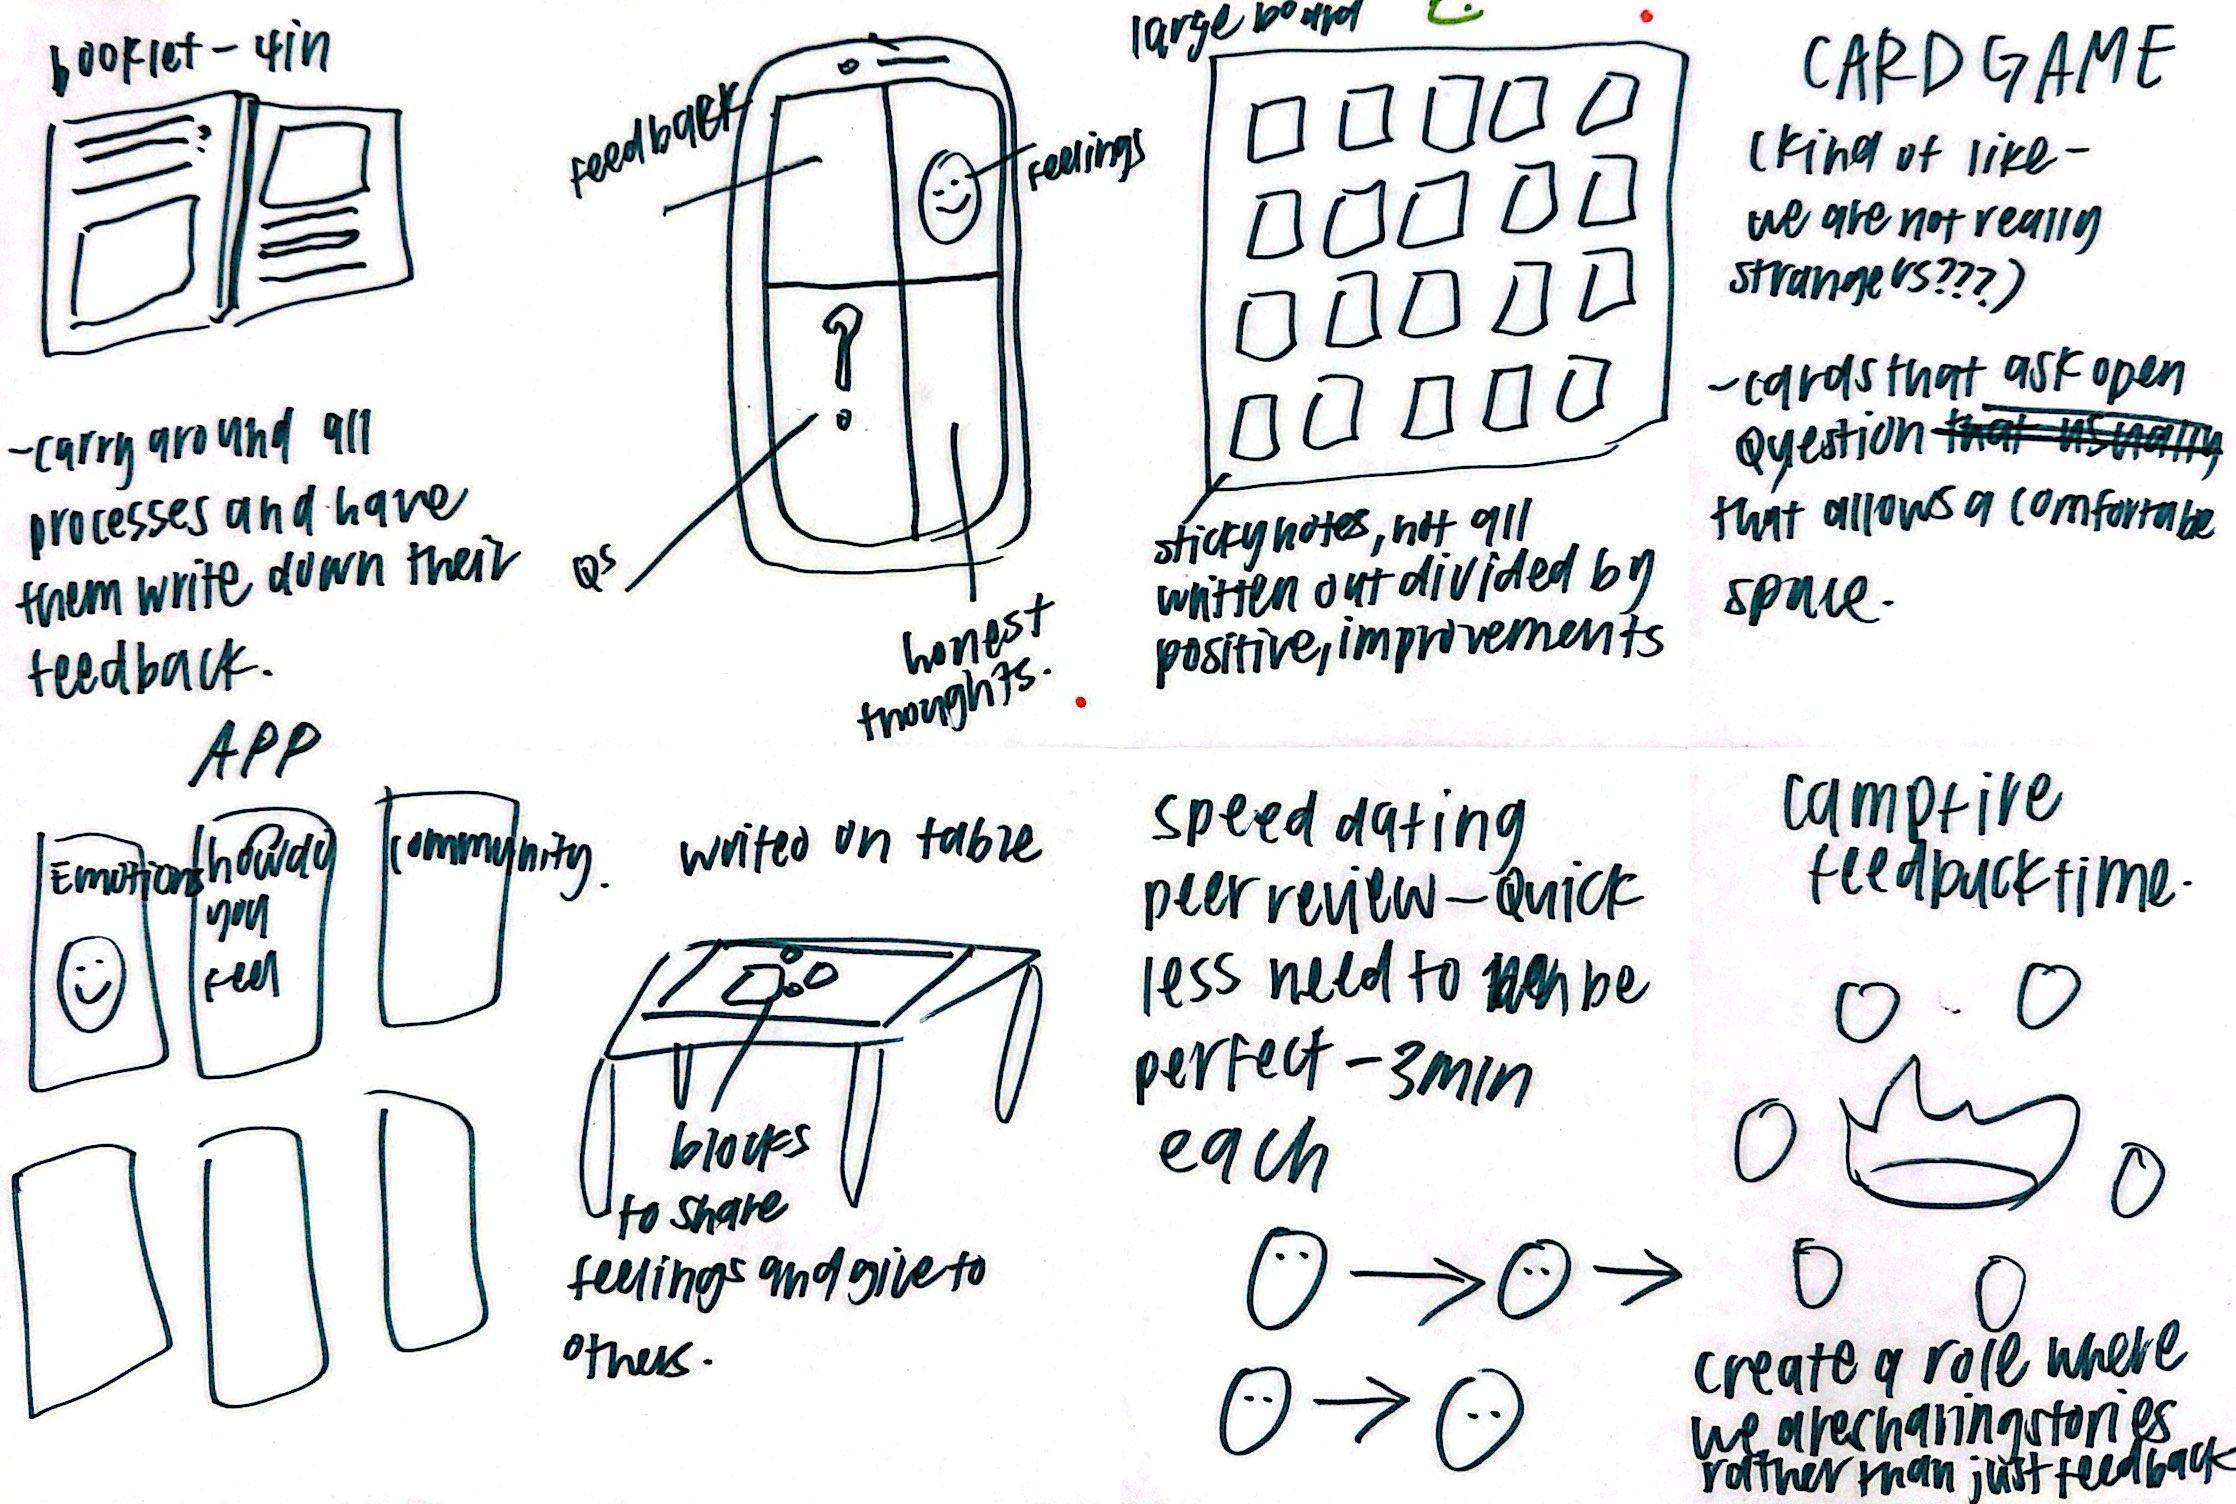 booklet - 4in
-carry around all
processes and have
them write down their
feedback.
feedback
feelings
?
Qs
honest
thoughts.
large board
stickynotes, not all
written out divided by
positive, improvements
CARD GAME
(kind of like -
we are not really
strangers???)
-cards that ask open
Question that usually
that allows a comfortabe
space.
APP
Emotions
how do
you
feel
community.
writed on table
blocks
to share
feelings and give to
others.
speed dating
peer review - Quick
less need to be
perfect - 3min
each
campfire
feedback time.
create a role where
we are sharing stories
rather than just feedback